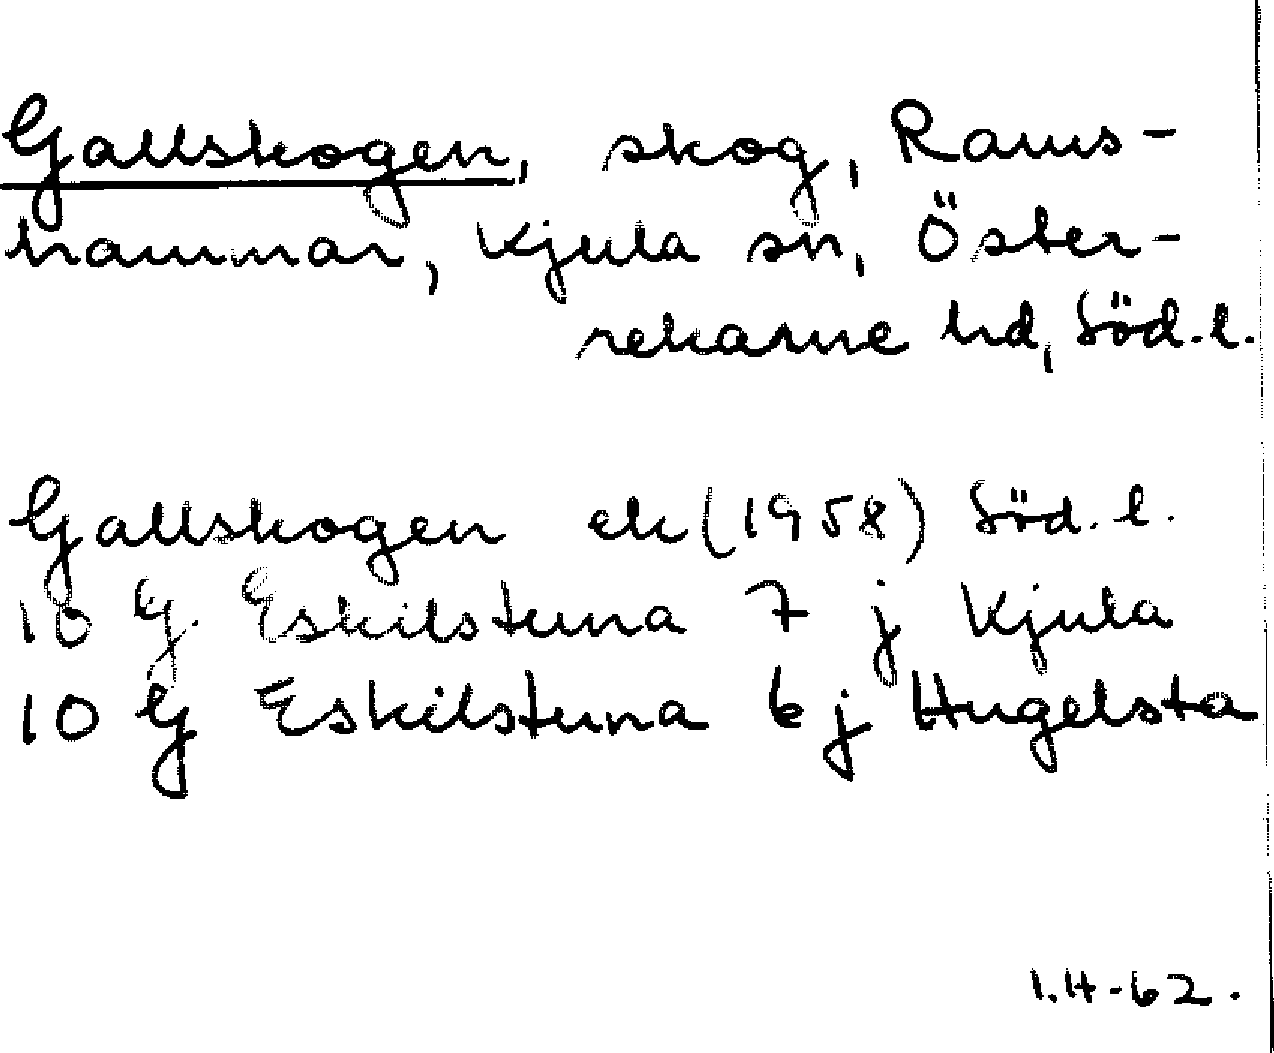 Gallskogen, skog, Rams-
hammar, Kjula sn, Öster-
rekarne hd, Söd.l.
Gallskogen ek (1958) Söd. l.
10 G. Eskilstuna 7 j Kjula
10 G Eskilstuna 6 j Hugelsta
I.H-62.